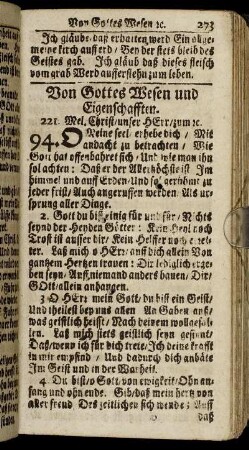 Von Gottes Wesen ꝛc. 273
Ich gläube, daß erhalten werd Ein allge-
meine kirch auff erd / Bey der stets bleib des
Geistes gab. Ich gläub daß dieses fleisch
vom grab Werd aufferstehn zum leben.
Von Gottes Wesen und
Eigenschafften.
221. Mel. Christ / unser HErr / zum ꝛc.
94. O Meine seel / erhebe dich / Mit
andacht zu betrachten / Wie
Gott hat offenbahret sich / Und wie man ihn
sol achten: Daß er der Allerhöchste ist Im
himmel und auff Erden / Und so gerühmt zu
jeder frist / Auch angeruffen werden / Als ur-
sprung aller Dinge.
2. Gott du bist einig für und für / Nichts
seynd der Heyden Götter: Kein Heyl noch
Trost ist ausser dir / Kein Helffer noch Er ret-
ter. Laß mich o HErr / auff dich allein Von
gantzem Hertzen trauen: Dir lediglich erge-
ben seyn, Auff niemand anders bauen / Dir /
GOtt / allein anhangen.
3. O HErr mein Gott / du bist ein Geist /
Und theilest bey uns allen An Gaben auß /
was geistlich heist / Nach deinem wolgefal-
len. Laß mich stets geistlich seyn gesinnt /
Daß / wenn ich für dich trete / Ich deine krafft
in mir empfind / Und dadurch dich anbäte
Im Geist und in der Warheit.
4. Du bist / o Gott, von ewigkeit / Ohn an-
fang und ohn ende. Gib / daß mein hertz von
aller freud Des zeitlichen sich wende; Auff
daß